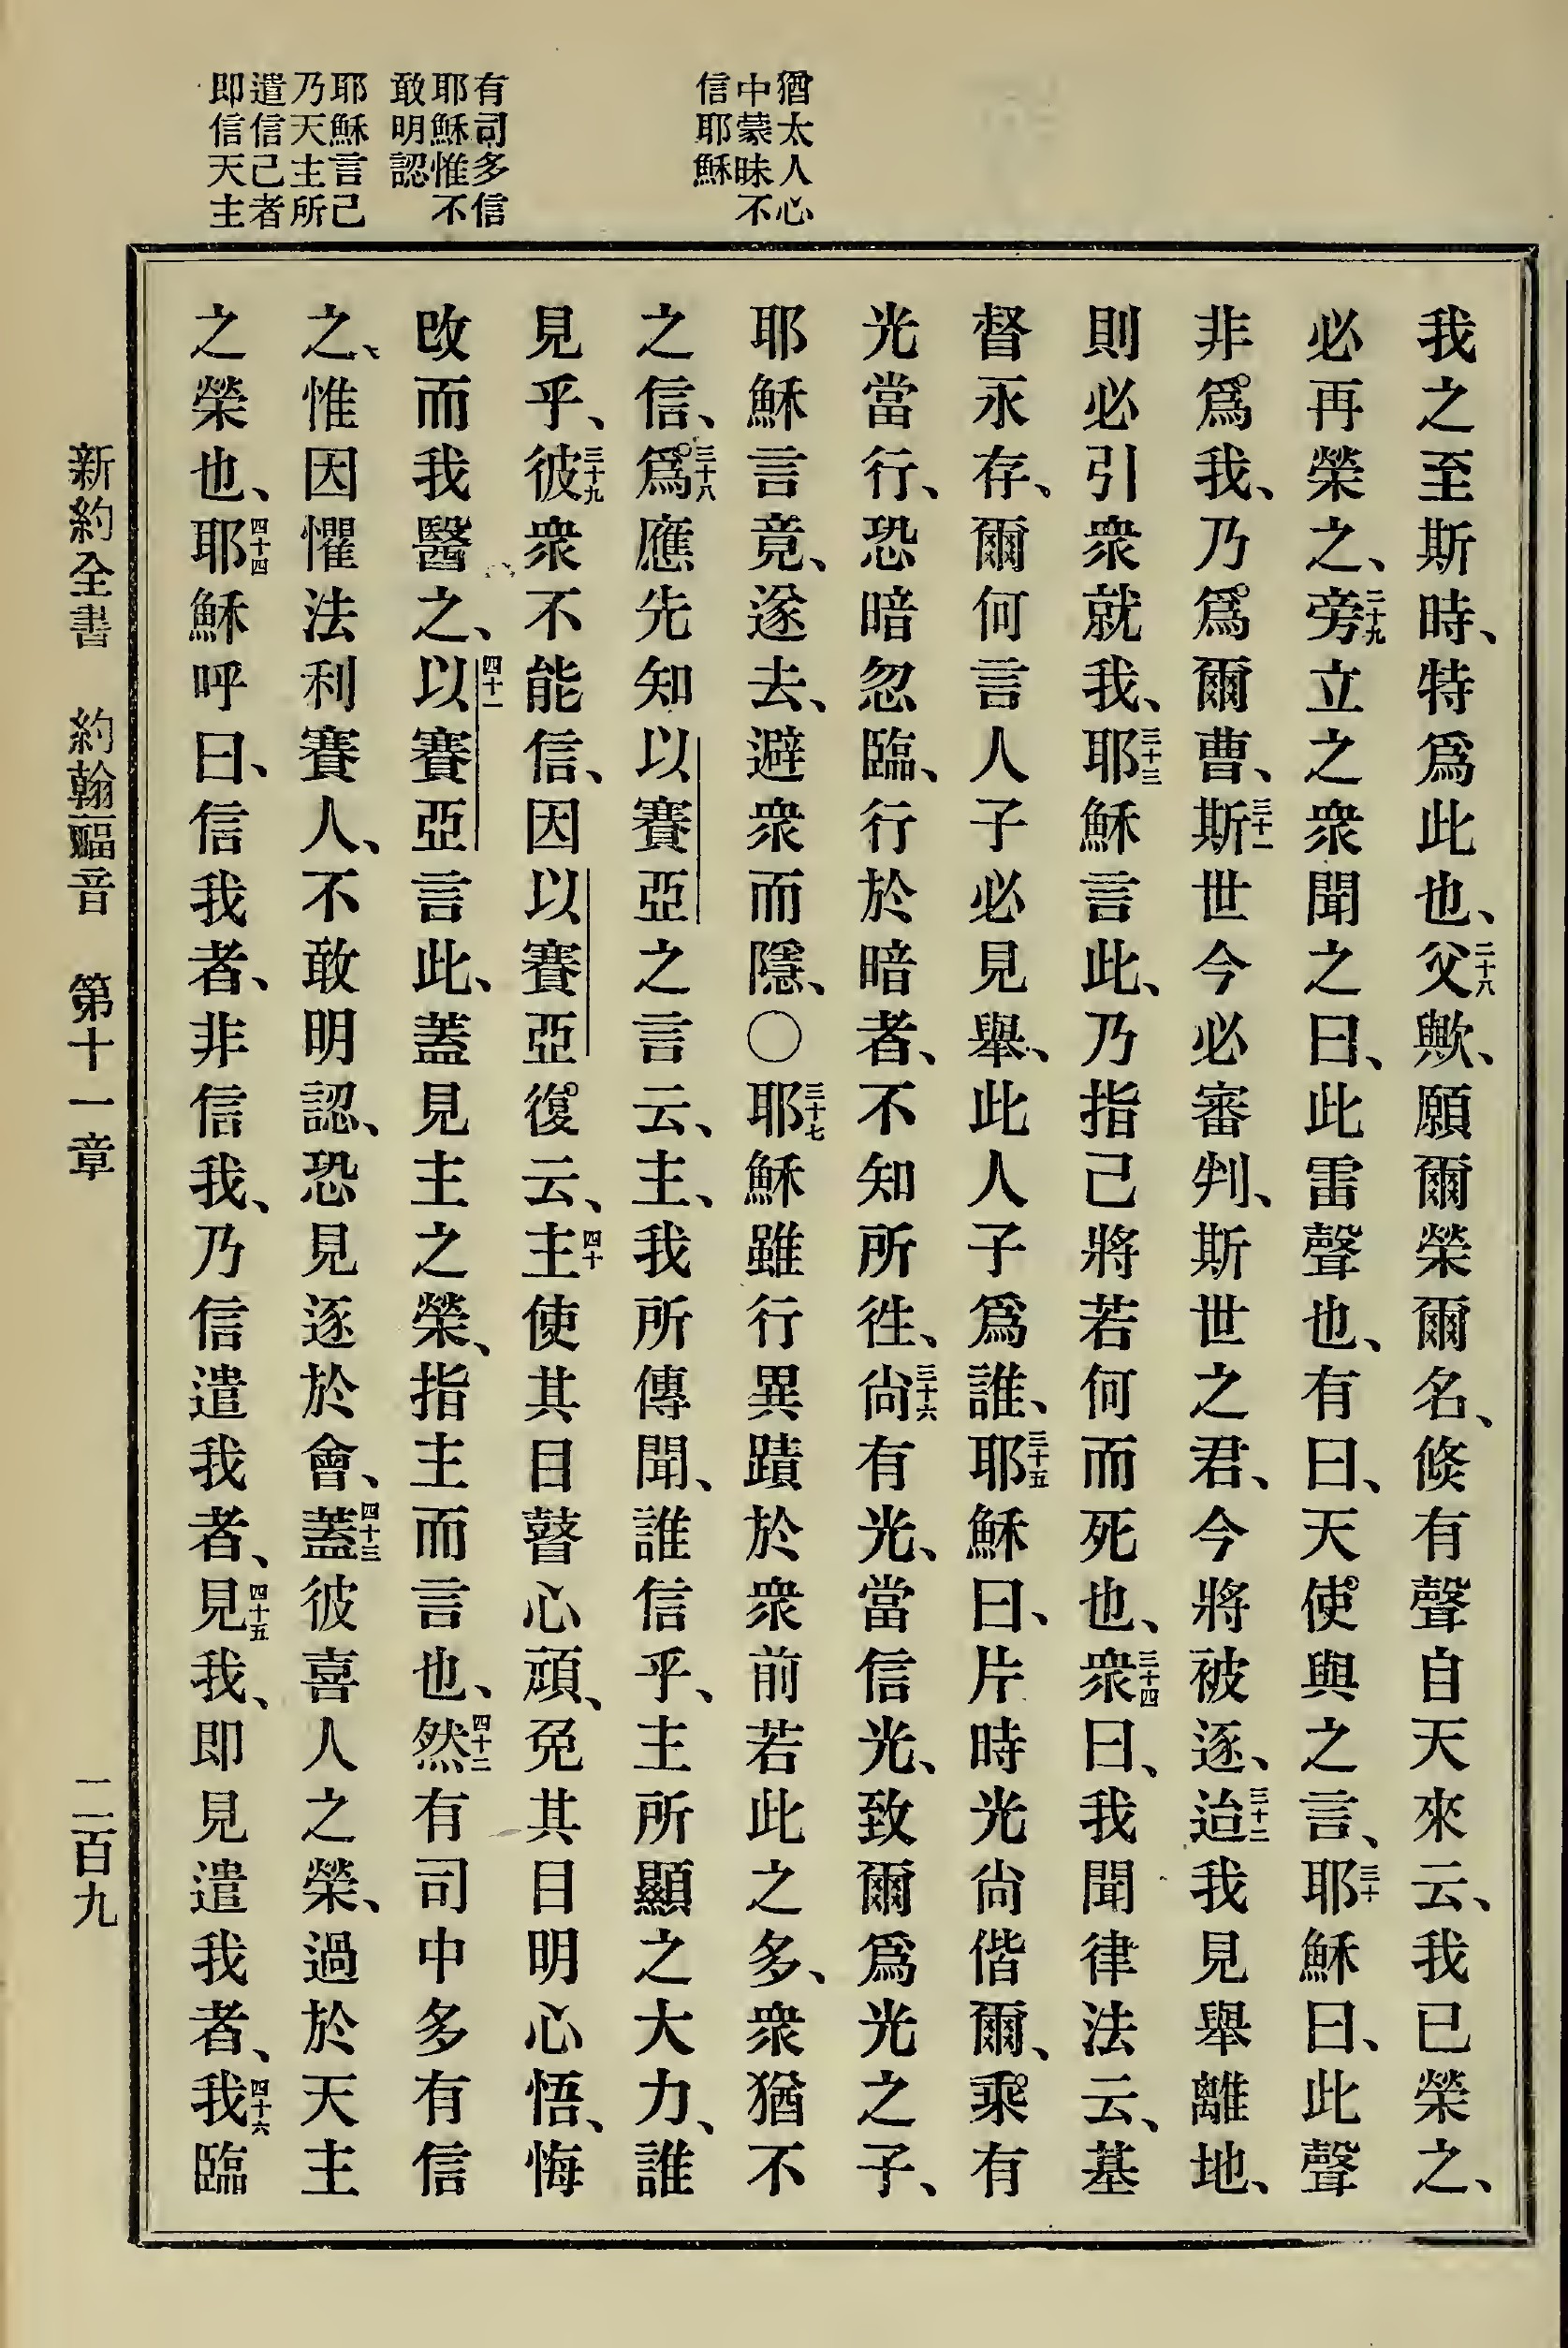 猶太人心
中蒙昧不
信耶穌
有司多信
耶穌惟不
敢明認
耶穌言己
乃天主所
遣信己者
即信天主
我之至斯時、特爲此也、二十八父歟、願爾榮爾名、倐有聲自天來云、我已榮之、
必再榮之、二十九旁立之衆聞之曰、此雷聲也、有曰、天使與之言、三十耶穌曰、此聲
非爲我、乃爲爾曹、三十一斯世今必審判、斯世之君、今將被逐、三十二迨我見舉離地、
則必引衆就我、三十三耶穌言此、乃指己將若何而死也、三十四衆曰、我聞律法云、基
督永存、爾何言人子必見舉、此人子爲誰、三十五耶穌曰、片時光尙偕爾、乘有
光當行、恐暗忽臨、行於暗者、不知所徃、三十六尙有光、當信光、致爾爲光之子、
耶穌言竟、遂去、避衆而隱、〇三十七耶穌雖行異蹟於衆前若此之多、衆猶不
之信、三十八爲應先知以賽亞之言云、主、我所傳聞、誰信乎、主所顯之大力、誰
見乎、三十九彼衆不能信、因以賽亞復云、四十主使其目瞽心頑、免其目明心悟、悔
改而我醫之、四十一以賽亞言此、蓋見主之榮、指主而言也、四十二然有司中多有信
之、惟因懼法利賽人、不敢明認、恐見逐於會、四十三蓋彼喜人之榮、過於天主
之榮也、四十四耶穌呼曰、信我者、非信我、乃信遣我者、四十五見我、即見遣我者、四十六我臨
新約全書 約翰福音 第十一章 二百九